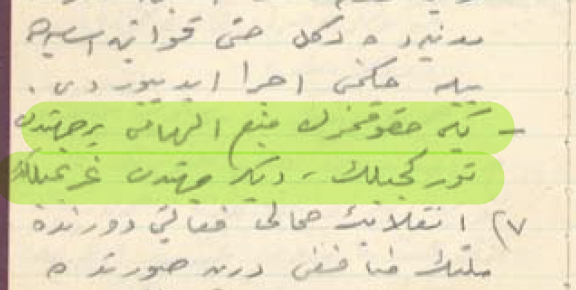 مدنیه ده دکل حتی قوانین اساسیه ده
بیله حکمنی اجرا ایدییوردی .
– یکی حقوقمزک منبع الهامی بر جهتدن
تورکجیلک - دیکر جهتدن غربجیلک
٧) انقلابک حالی فعالیتی دورنده
ملتک منافعنی درین صورتده